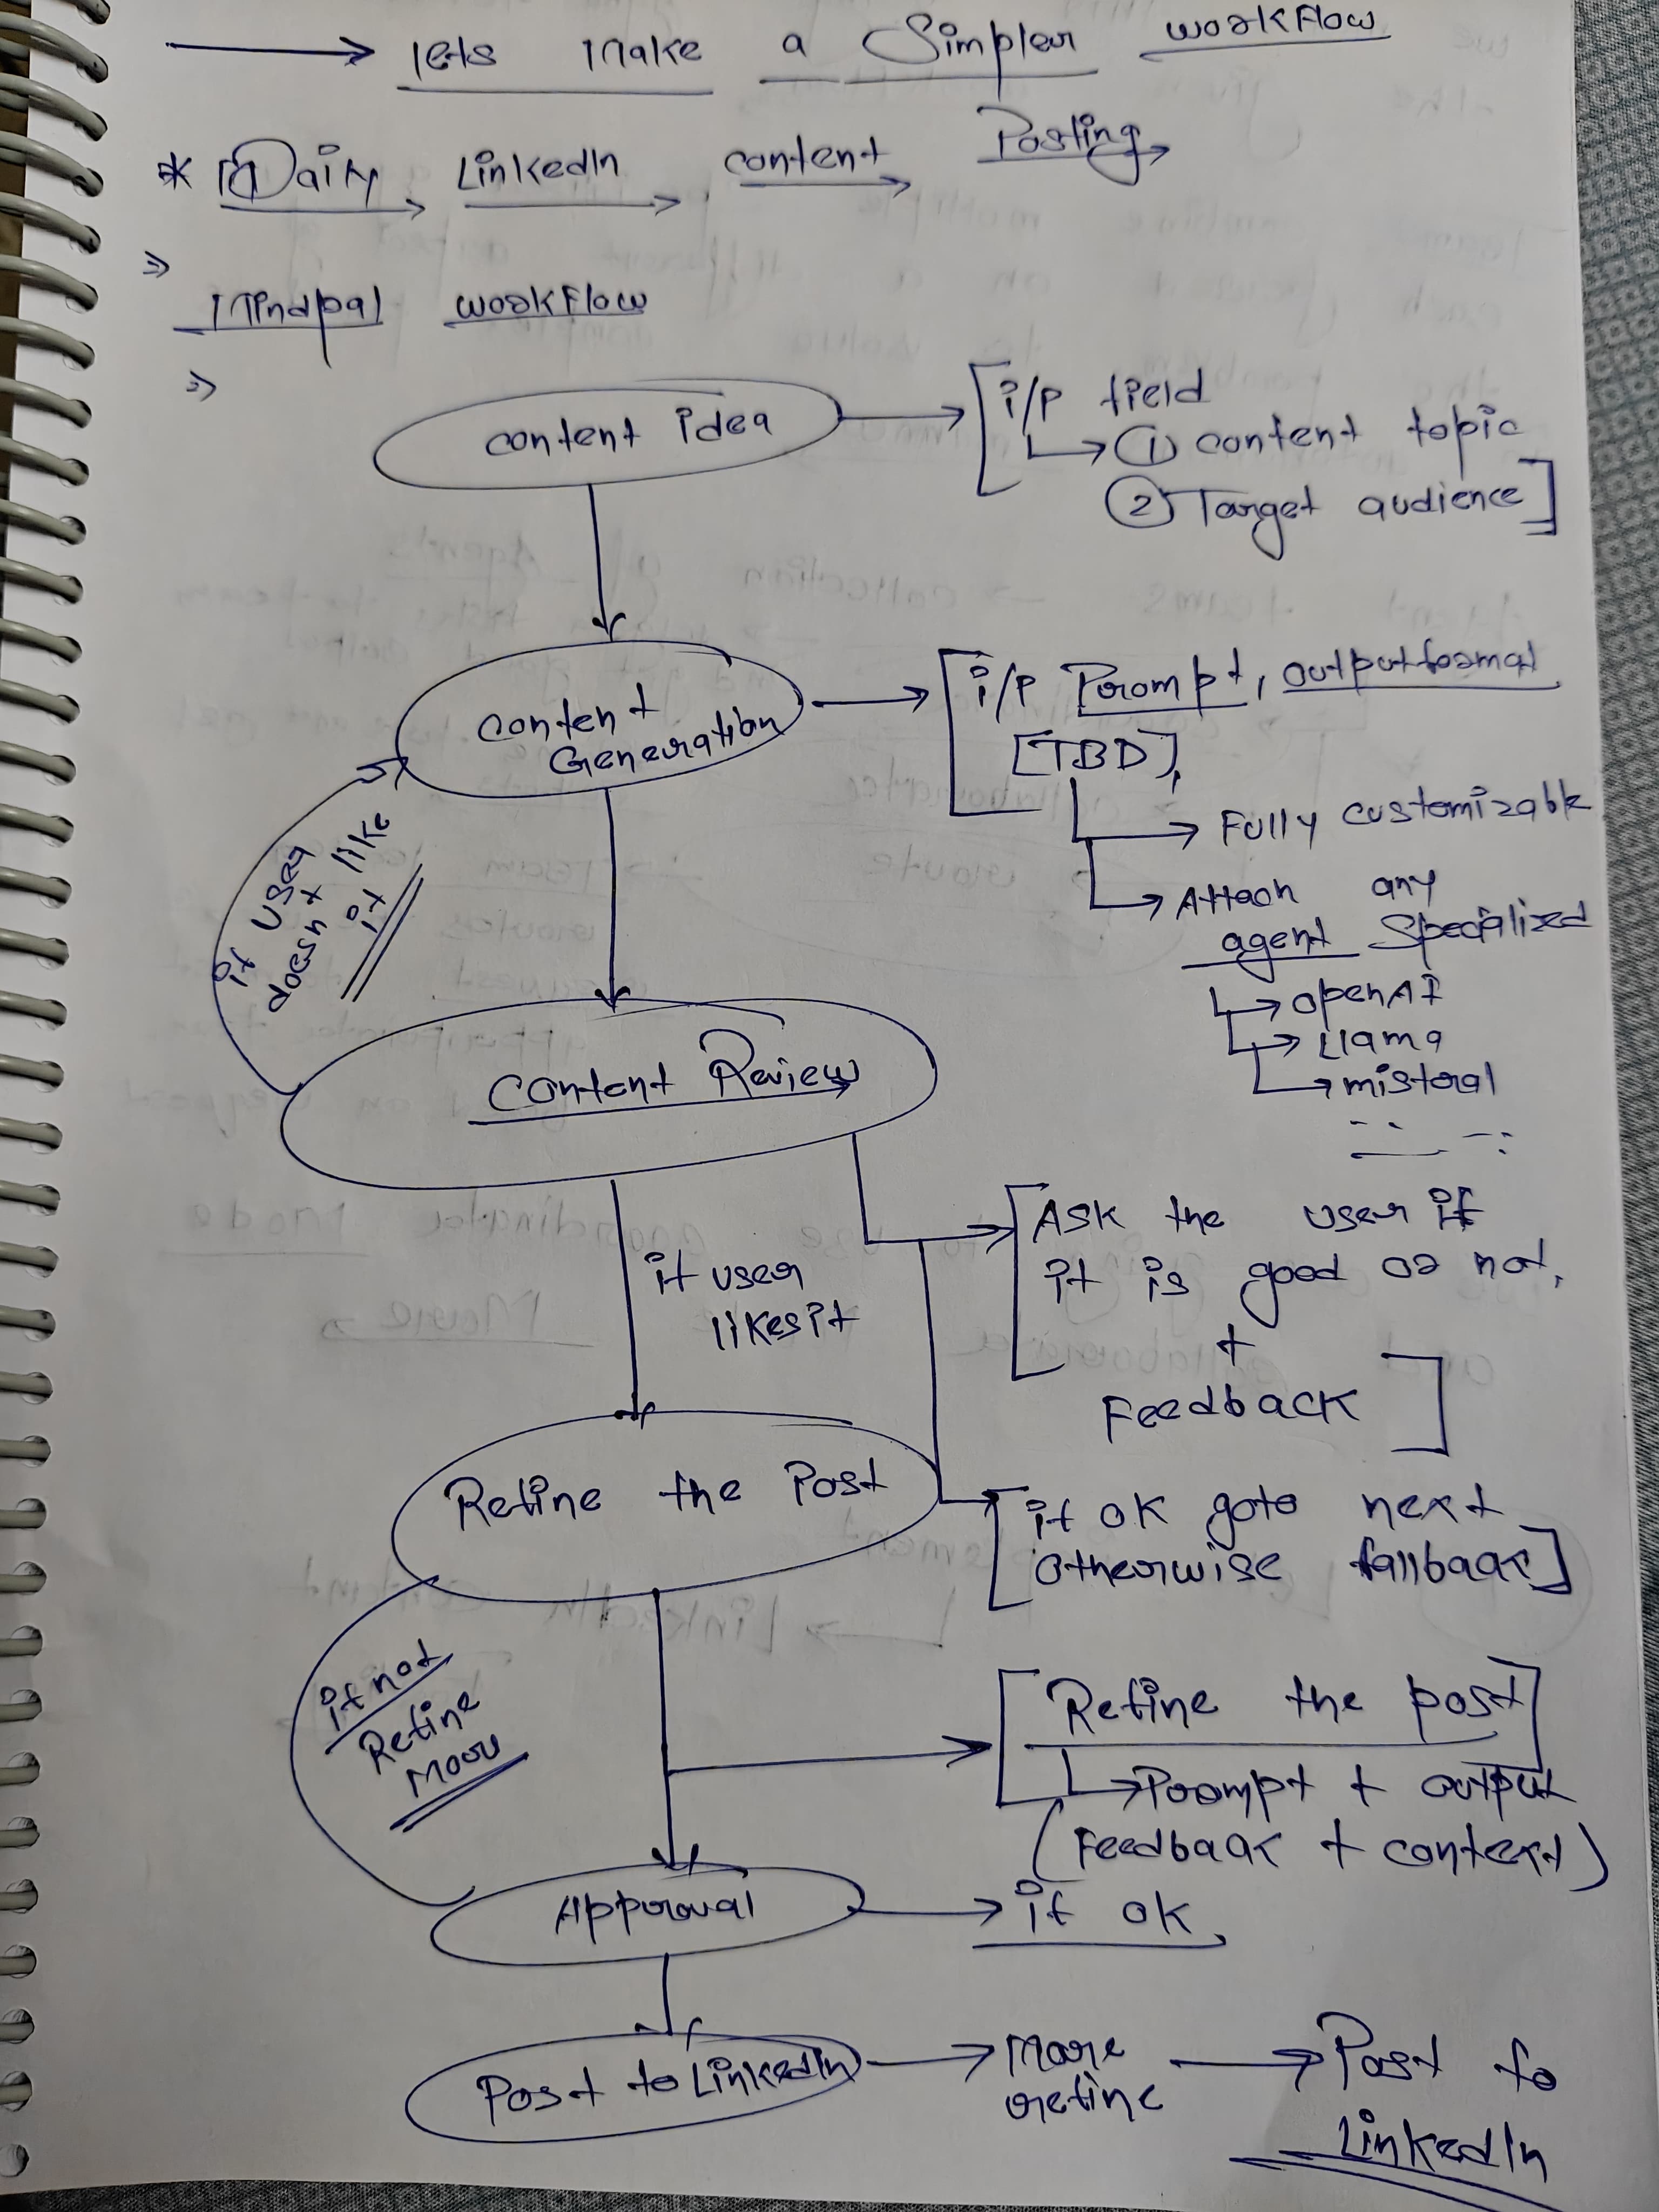 Lets Make a Simpler workflow
* Daily LinkedIn content Posting
Mindpal workflow
content idea
i/p field
① content topic
② Target audience
content Generation
i/p Prompt, outputformat
[TBD],
Fully customizable
Attach any
agent Specialized
openAI
Llama
mistral
if user
doesnt like
it
Content Review
Ask the user if
it is good or not,
+
Feedback
if user
likes it
Refine the Post
if ok goto next
otherwise fallback
if not
Refine
More
Refine the post
Prompt + output
(Feedback + context)
Approval
if ok
Post to LinkedIn
More
refine
Post to
LinkedIn